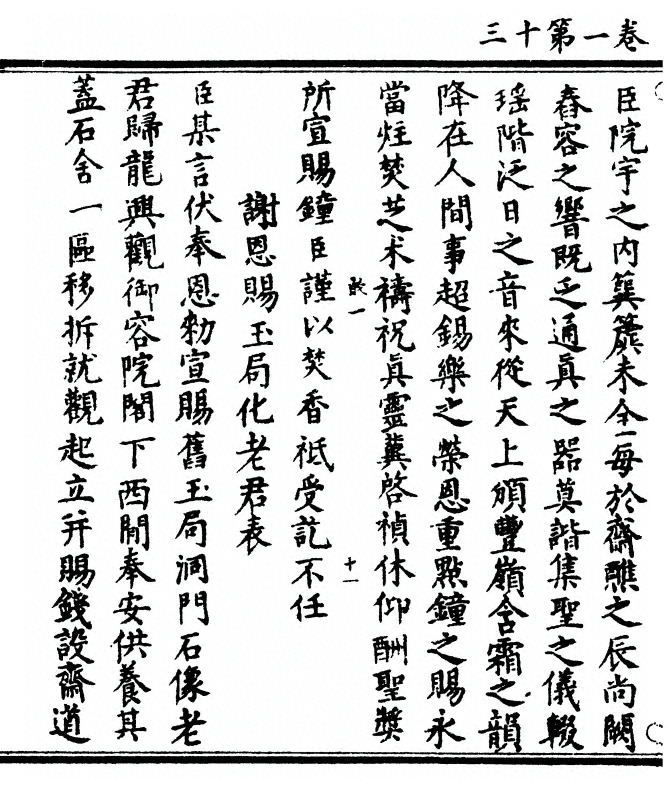 三十第一卷
臣院宇之内簨簴未全每於齋醮之辰尚闕
舂容之響旣乏通眞之器莫諧集聖之儀輟
瑶階泛日之音來從天上頒豐嶺含霜之韻
降在人間事超錫樂之榮恩重㸃鐘之賜永
當炷焚芝术禱祝眞靈冀啓禎休仰酬聖奬
数一 十一
所宣賜鐘臣謹以焚香祗受訖不任
謝恩賜玉局化老君表
臣某言伏奉恩勑宣賜舊玉局洞門石像老
君歸龍興觀御容院閣下西間奉安供養其
蓋石舍一區移拆就觀起立并賜錢設齋道